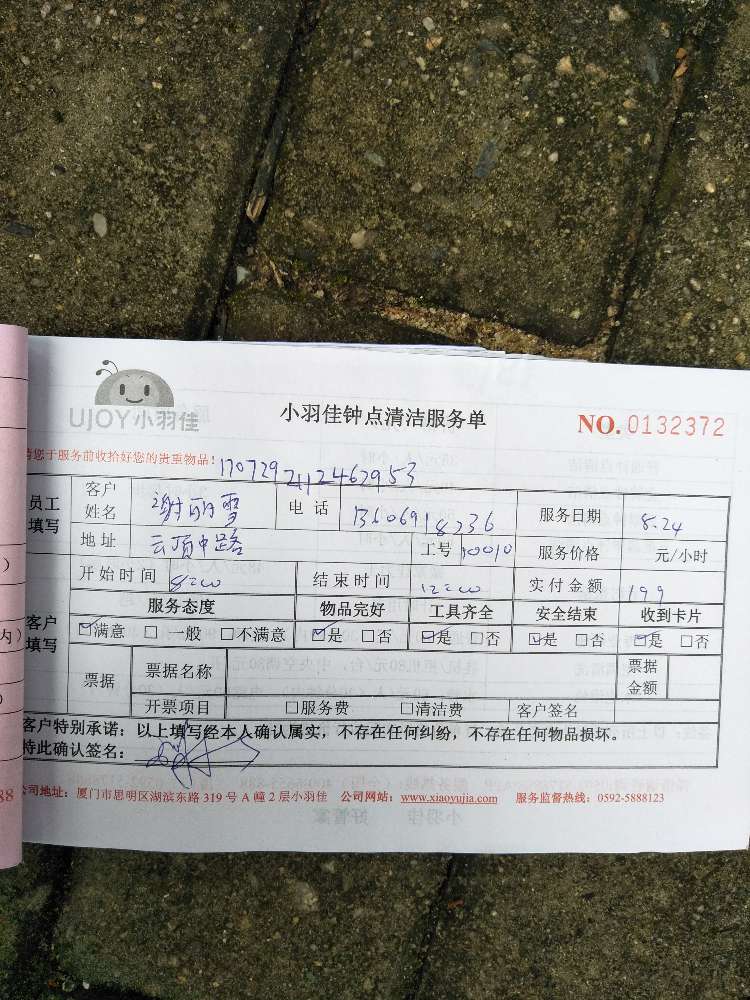 UJOY小羽佳
小羽佳钟点清洁服务单
NO. 0132372
您于服务前收拾好您的贵重物品!
员工填写 客户姓名 谢丽雪 电话 13606918236 服务日期 8.24
地址 云顶中路 工号 10010 服务价格 元/小时
客户填写 开始时间 8:00 结束时间 12:00 实付金额 199
服务态度 物品完好 工具齐全 安全结束 收到卡片
☑满意 □一般 □不满意 ☑是 □否 ☑是 □否 ☑是 □否 ☑是 □否
票据 票据名称 票据金额
开票项目 □服务费 □清洁费 客户签名
客户特别承诺:以上填写经本人确认属实,不存在任何纠纷,不存在任何物品损坏。
特此确认签名:
公司地址:厦门市思明区湖滨东路 319 号 A 幢 2 层小羽佳 公司网站:www.xiaoyujia.com 服务监督热线:0592-5888123